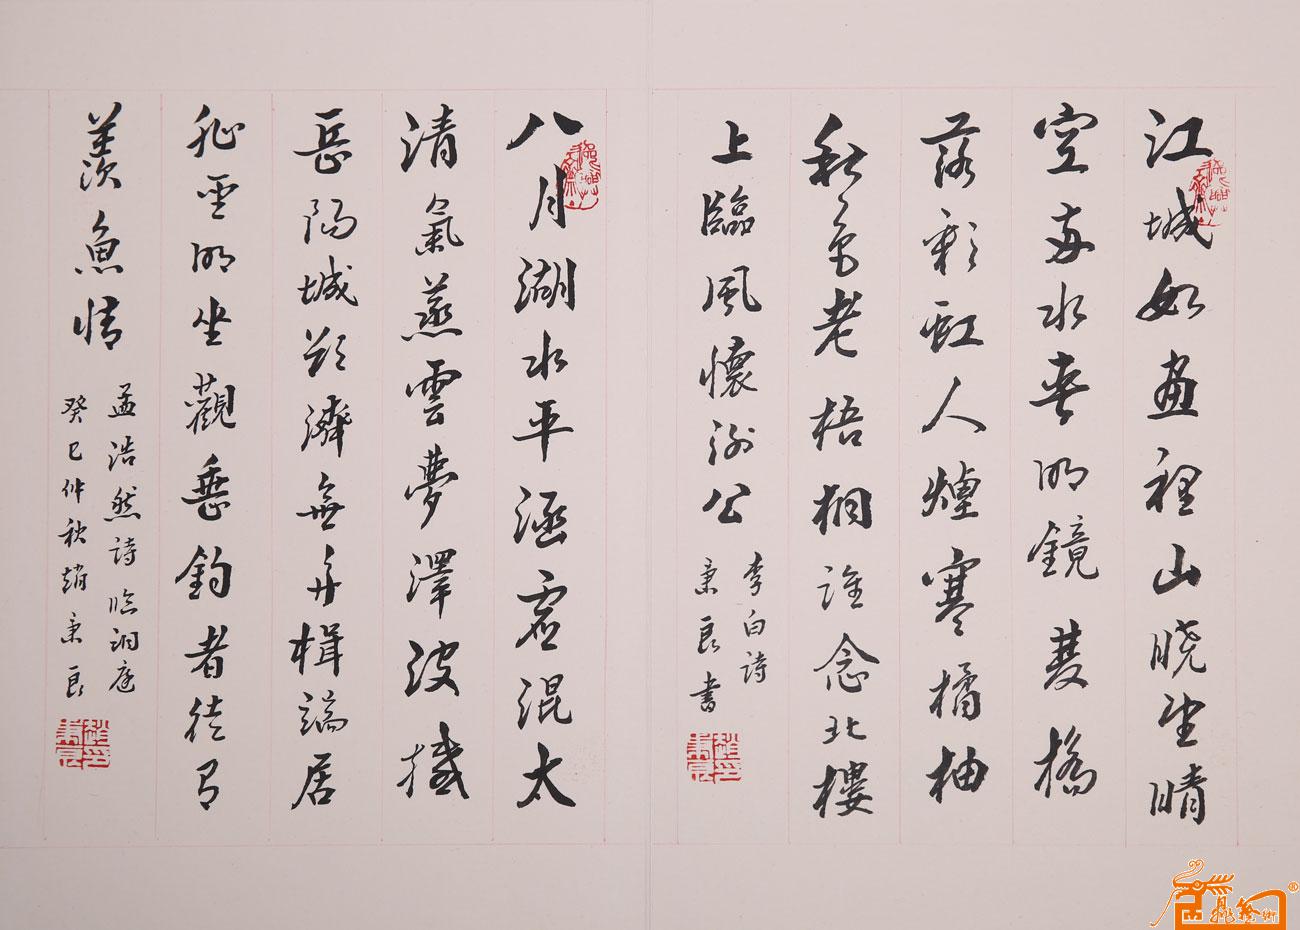 江城如畫裡山晓望晴
空两水夾明鏡雙橋
落彩虹人煙寒橘柚
秋色老梧桐誰念北樓
上臨風懷谢公
李白詩
秉良書
八月湖水平涵虚混太
清氣蒸雲夢澤波撼
岳陽城欲濟無舟楫端居
恥聖明坐觀垂釣者徒有
羡魚情
孟浩然詩臨洞庭
癸巳仲秋趙秉良